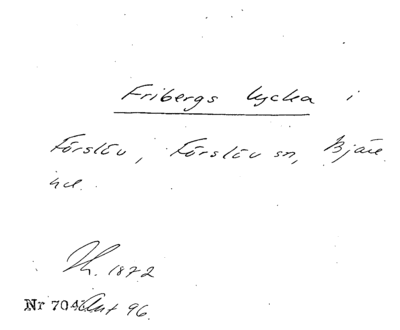 Fribergs lycka i
Förslöv, Förslöv sn, Bjäre
hd.
Th. 1872
Nr 704 Ant 96.